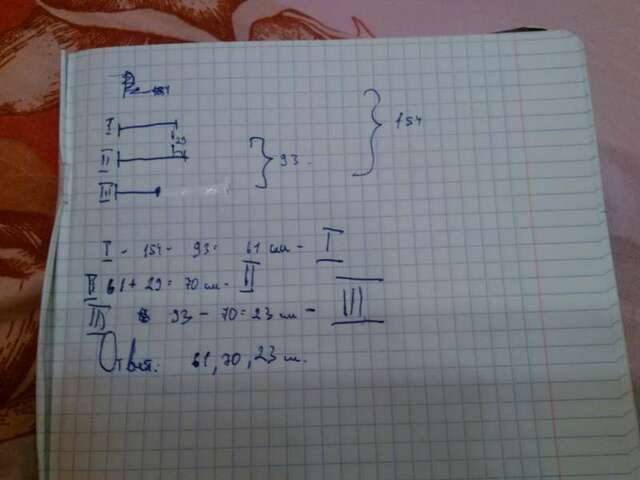 P - 154
I
29
II
III
93
154
I - 154 - 93 = 61 см - I
II 61 + 29 = 70 см - II
III 93 - 70 = 23 см - III
Ответ: 61, 70, 23 см.